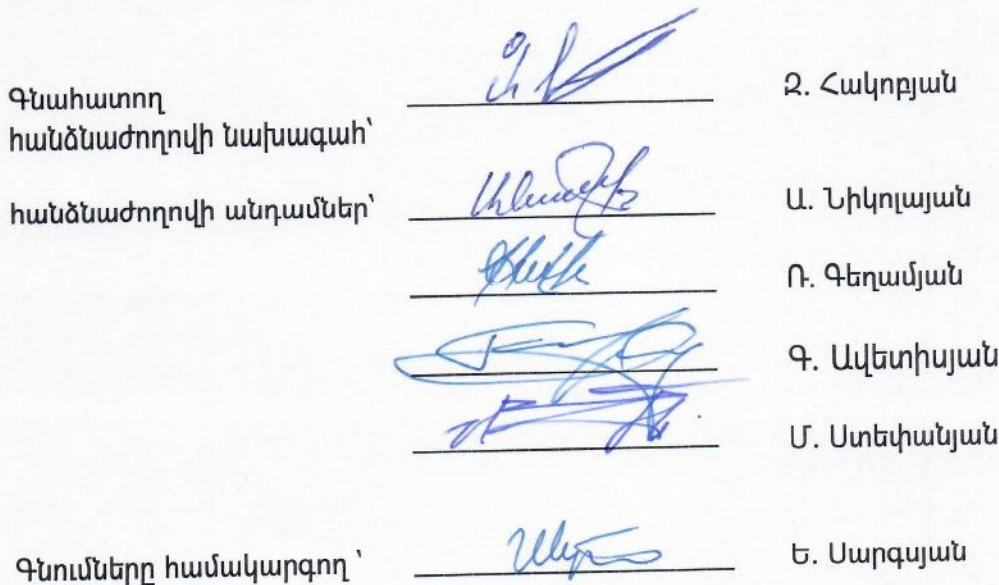 Գնահատող
հանձնաժողովի նախագահ՝
Զ. Հակոբյան
հանձնաժողովի անդամներ՝
Ա. Նիկոլայան
Ռ. Գեղամյան
Գ. Ավետիսյան
Մ. Ստեփանյան
Գնումները համակարգող ՝
Ե. Սարգսյան